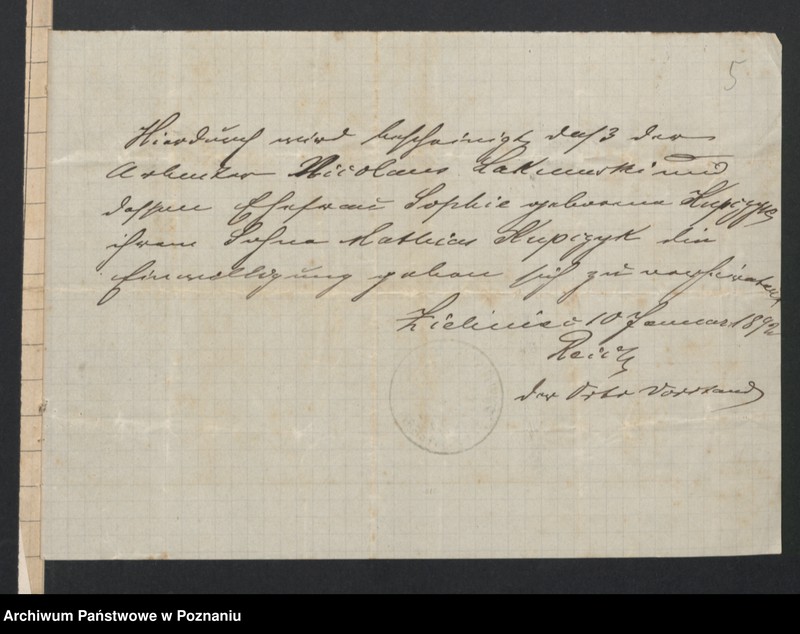 5
Hierdurch wird bescheinigt daß der
Arbeiter Nicolaus Lakmerski und
dessen Ehefrau Sophie geborene Kupczyk
ihrem Sohne Mathias Kupczyk die
Einwilligung geben sich zu verheirathen
Zieliniec 10 Januar 1892
der Orts Vorstand
Archiwum Państwowe w Poznaniu